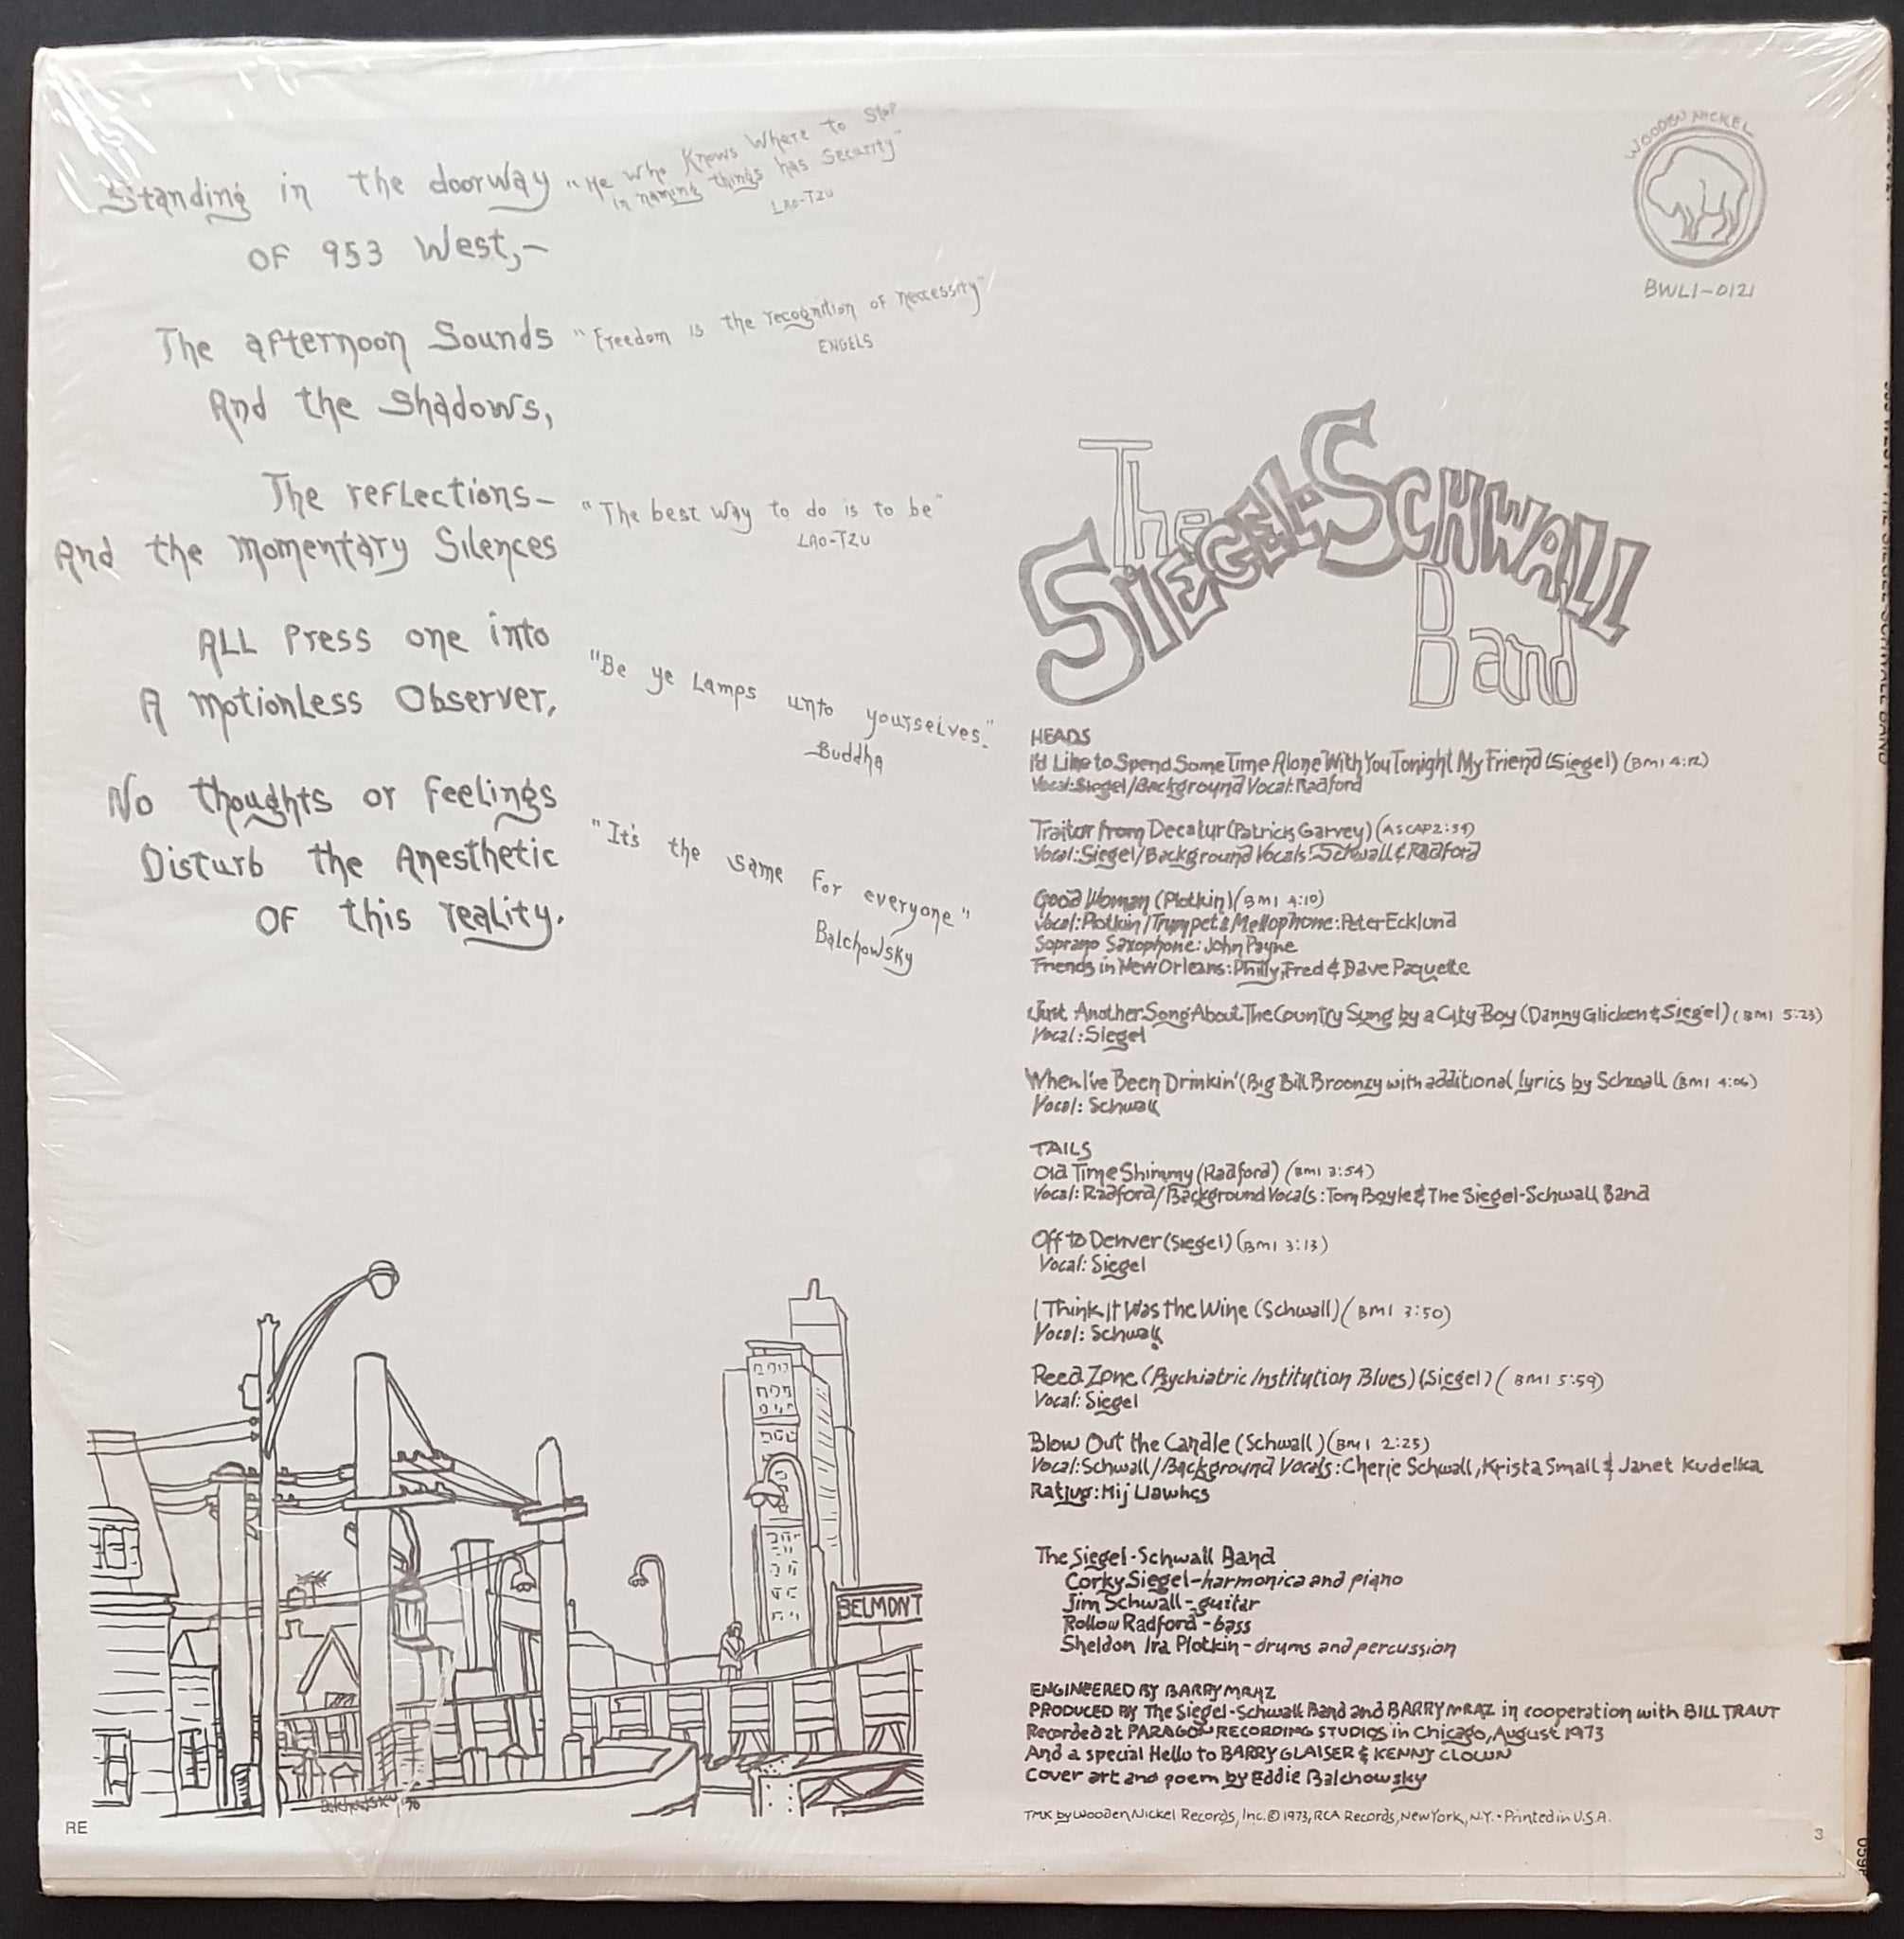 Standing in the doorway
OF 953 West,-
The afternoon Sounds
And the Shadows,
The reflections-
And the Momentary Silences
ALL Press one into
A Motionless Observer,
No thoughts or Feelings
Disturb the Anesthetic
OF this reality.
"He Who Knows Where to Stop
in naming things has Security"
LAO-TZU
"Freedom is the recognition of neccessity"
ENGELS
"The best way to do is to be"
LAO-TZU
"Be ye Lamps unto yourselves."
-Buddha
"It's the same For everyone"
Balchowsky
WOODEN NICKEL
BWL1-0121
The
SIEGEL-SCHWALL
Band
HEADS
I'd Like to Spend Some Time Alone With You Tonight My Friend (Siegel) (BMI 4:12)
Vocal: Siegel/Background Vocal: Radford
Traitor from Decatur (Patrick Garvey) (ASCAP 2:34)
Vocal: Siegel/Background Vocals: Schwall & Radford
Good Woman (Plotkin) (BMI 4:10)
Vocal: Plotkin/Trumpet & Mellophone: Peter Ecklund
Soprano Saxophone: John Payne
Friends in New Orleans: Philly, Fred & Dave Paquette
Just Another Song About The Country Sung by a City Boy (Danny Glicken & Siegel) (BMI 5:23)
Vocal: Siegel
When I've Been Drinkin' (Big Bill Broonzy with additional lyrics by Schwall (BMI 4:06)
Vocal: Schwall
TAILS
Old Time Shimmy (Radford) (BMI 3:54)
Vocal: Radford/Background Vocals: Tom Boyle & The Siegel-Schwall Band
Off to Denver (Siegel) (BMI 3:13)
Vocal: Siegel
I Think It Was the Wine (Schwall) (BMI 3:50)
Vocal: Schwall
Reed Zone (Psychiatric Institution Blues) (Siegel) (BMI 5:59)
Vocal: Siegel
Blow Out the Candle (Schwall) (BMI 2:25)
Vocal: Schwall/Background Vocals: Cherie Schwall, Krista Small & Janet Kudelka
Ratiug: Mij Llawhcs
The Siegel-Schwall Band
Corky Siegel-harmonica and piano
Jim Schwall-guitar
Rollow Radford-bass
Sheldon Ira Plotkin-drums and percussion
ENGINEERED BY BARRY MRAZ
PRODUCED BY The Siegel-Schwall Band and BARRY MRAZ in cooperation with BILL TRAUT
Recorded at PARAGON RECORDING STUDIOS in Chicago, August 1973
And a special Hello to BARRY GLAISER & KENNY CLOWN
Cover art and poem by Eddie Balchowsky
TMK by Wooden Nickel Records, Inc. © 1973, RCA Records, New York, N.Y. • Printed in U.S.A.
BELMONT
Balchowsky '70
RE
3